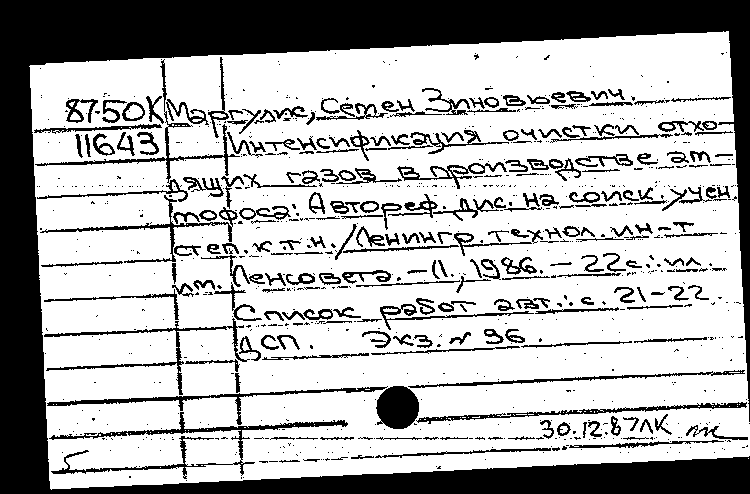 87-50К Маргулис, Семен Зиновьевич.
11643 Интенсификация очистки отхо-
дящих газов в производстве ам-
мофоса: Автореф. дис. на соиск. учен.
степ. к.т.н. / Ленингр. технол. ин-т
им. Ленсовета. – Л., 1986. – 22 с.: ил.
Список работ авт.: с. 21-22.
ДСП. Экз. № 96.
30.12.87 ЛК
5